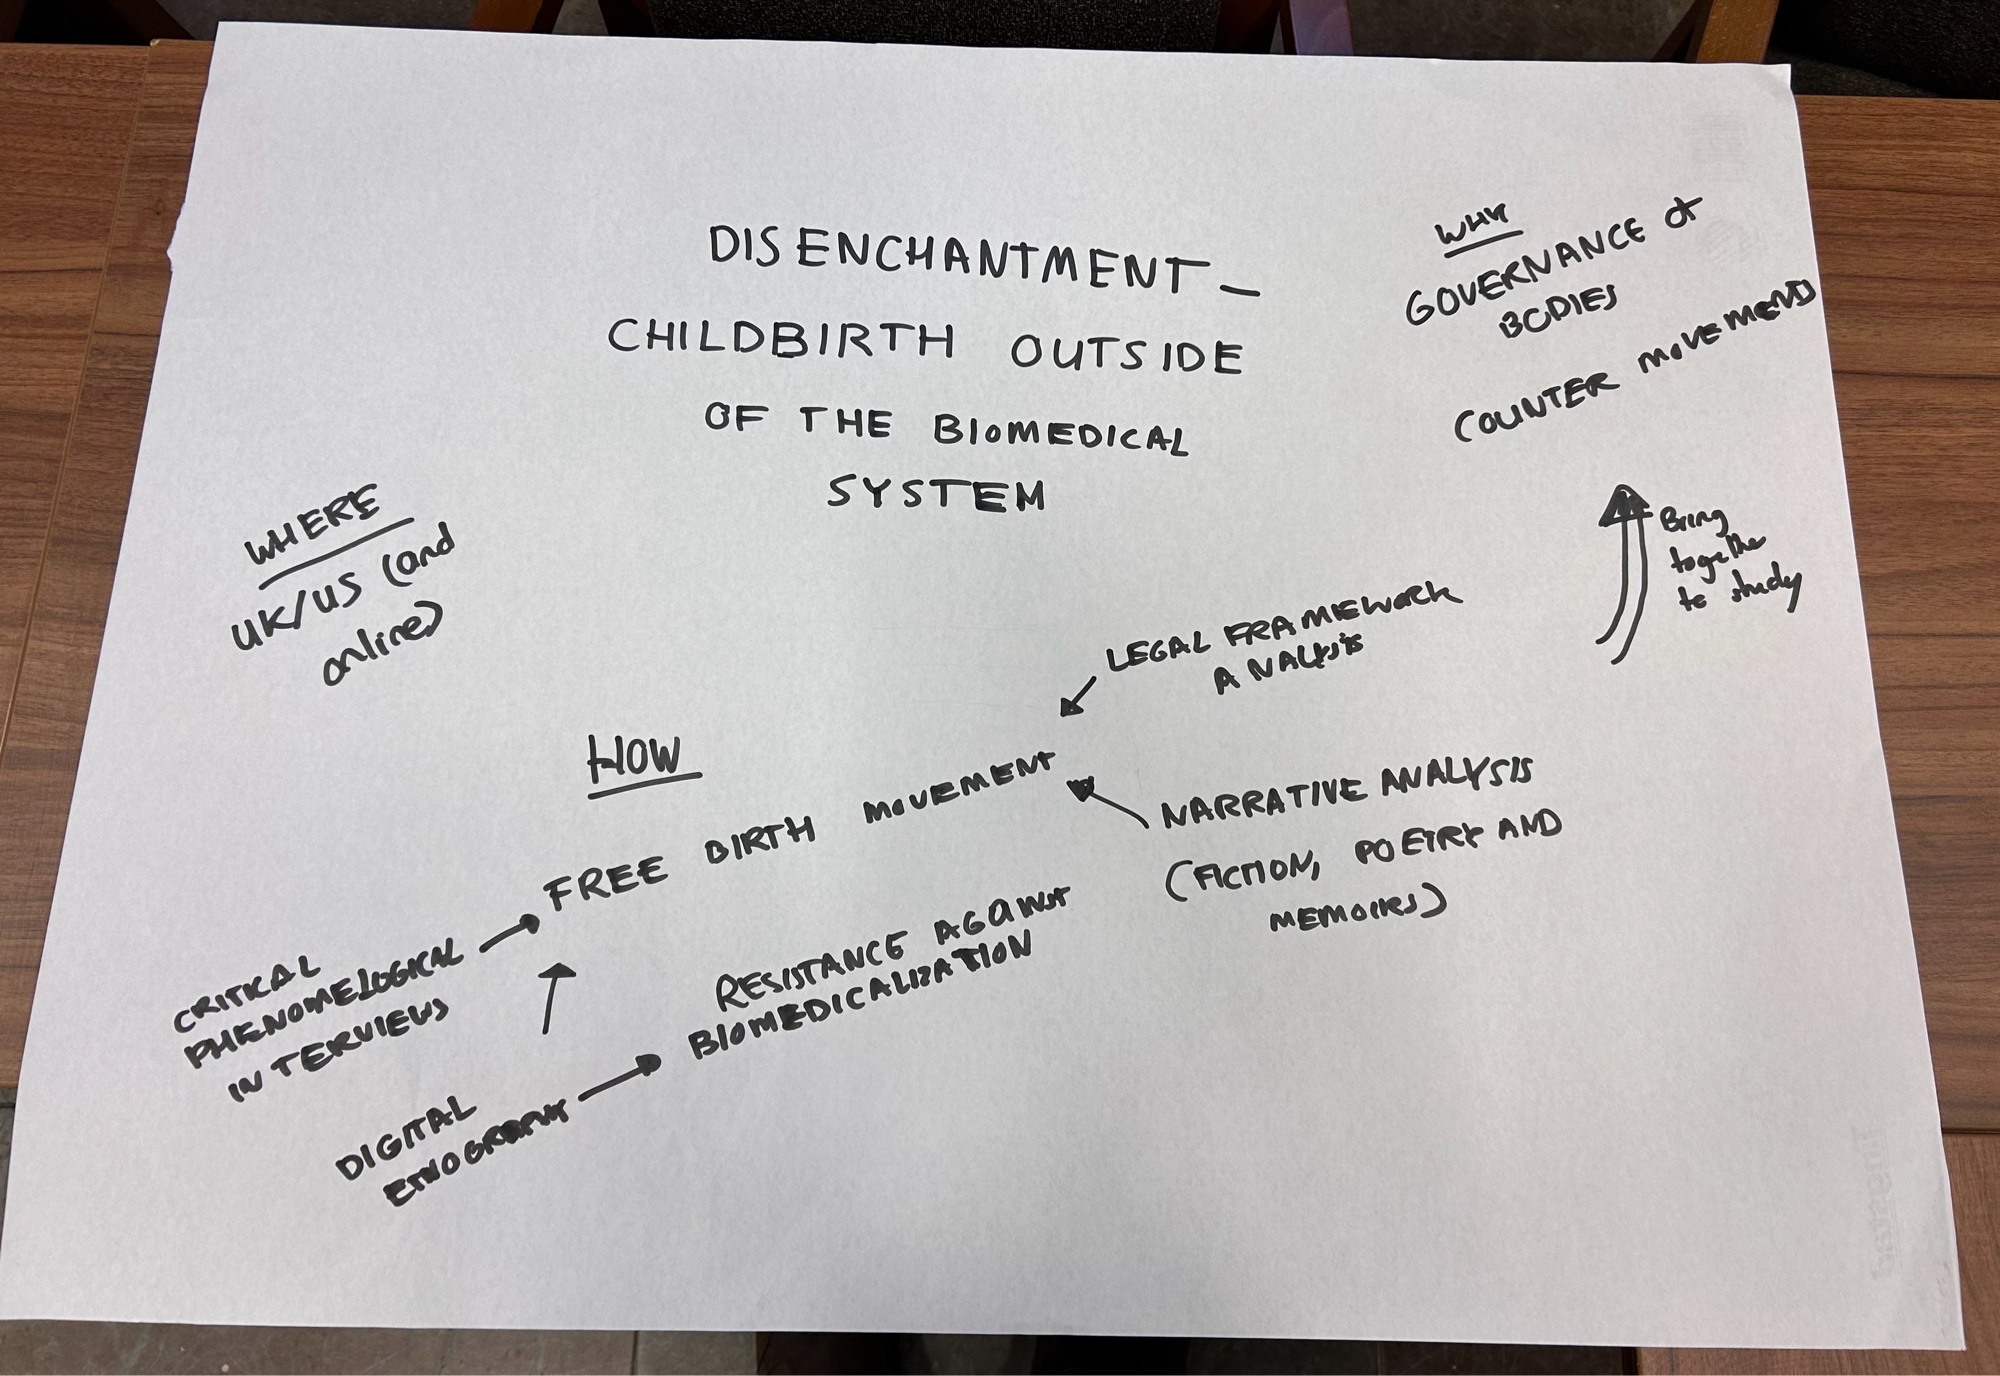 DISENCHANTMENT –
CHILDBIRTH OUTSIDE
OF THE BIOMEDICAL
SYSTEM
WHY
GOVERNANCE OF
BODIES
COUNTER MOVEMENTS
Bring
together
to study
WHERE
UK/US (and
online)
HOW
FREE BIRTH MOVEMENT
LEGAL FRAMEWORK
ANALYSIS
NARRATIVE ANALYSIS
(FICTION, POETRY AND
MEMOIRS)
CRITICAL
PHENOMELOGICAL
INTERVIEWS
RESISTANCE AGAINST
BIOMEDICALIZATION
DIGITAL
ETNOGRAPHY